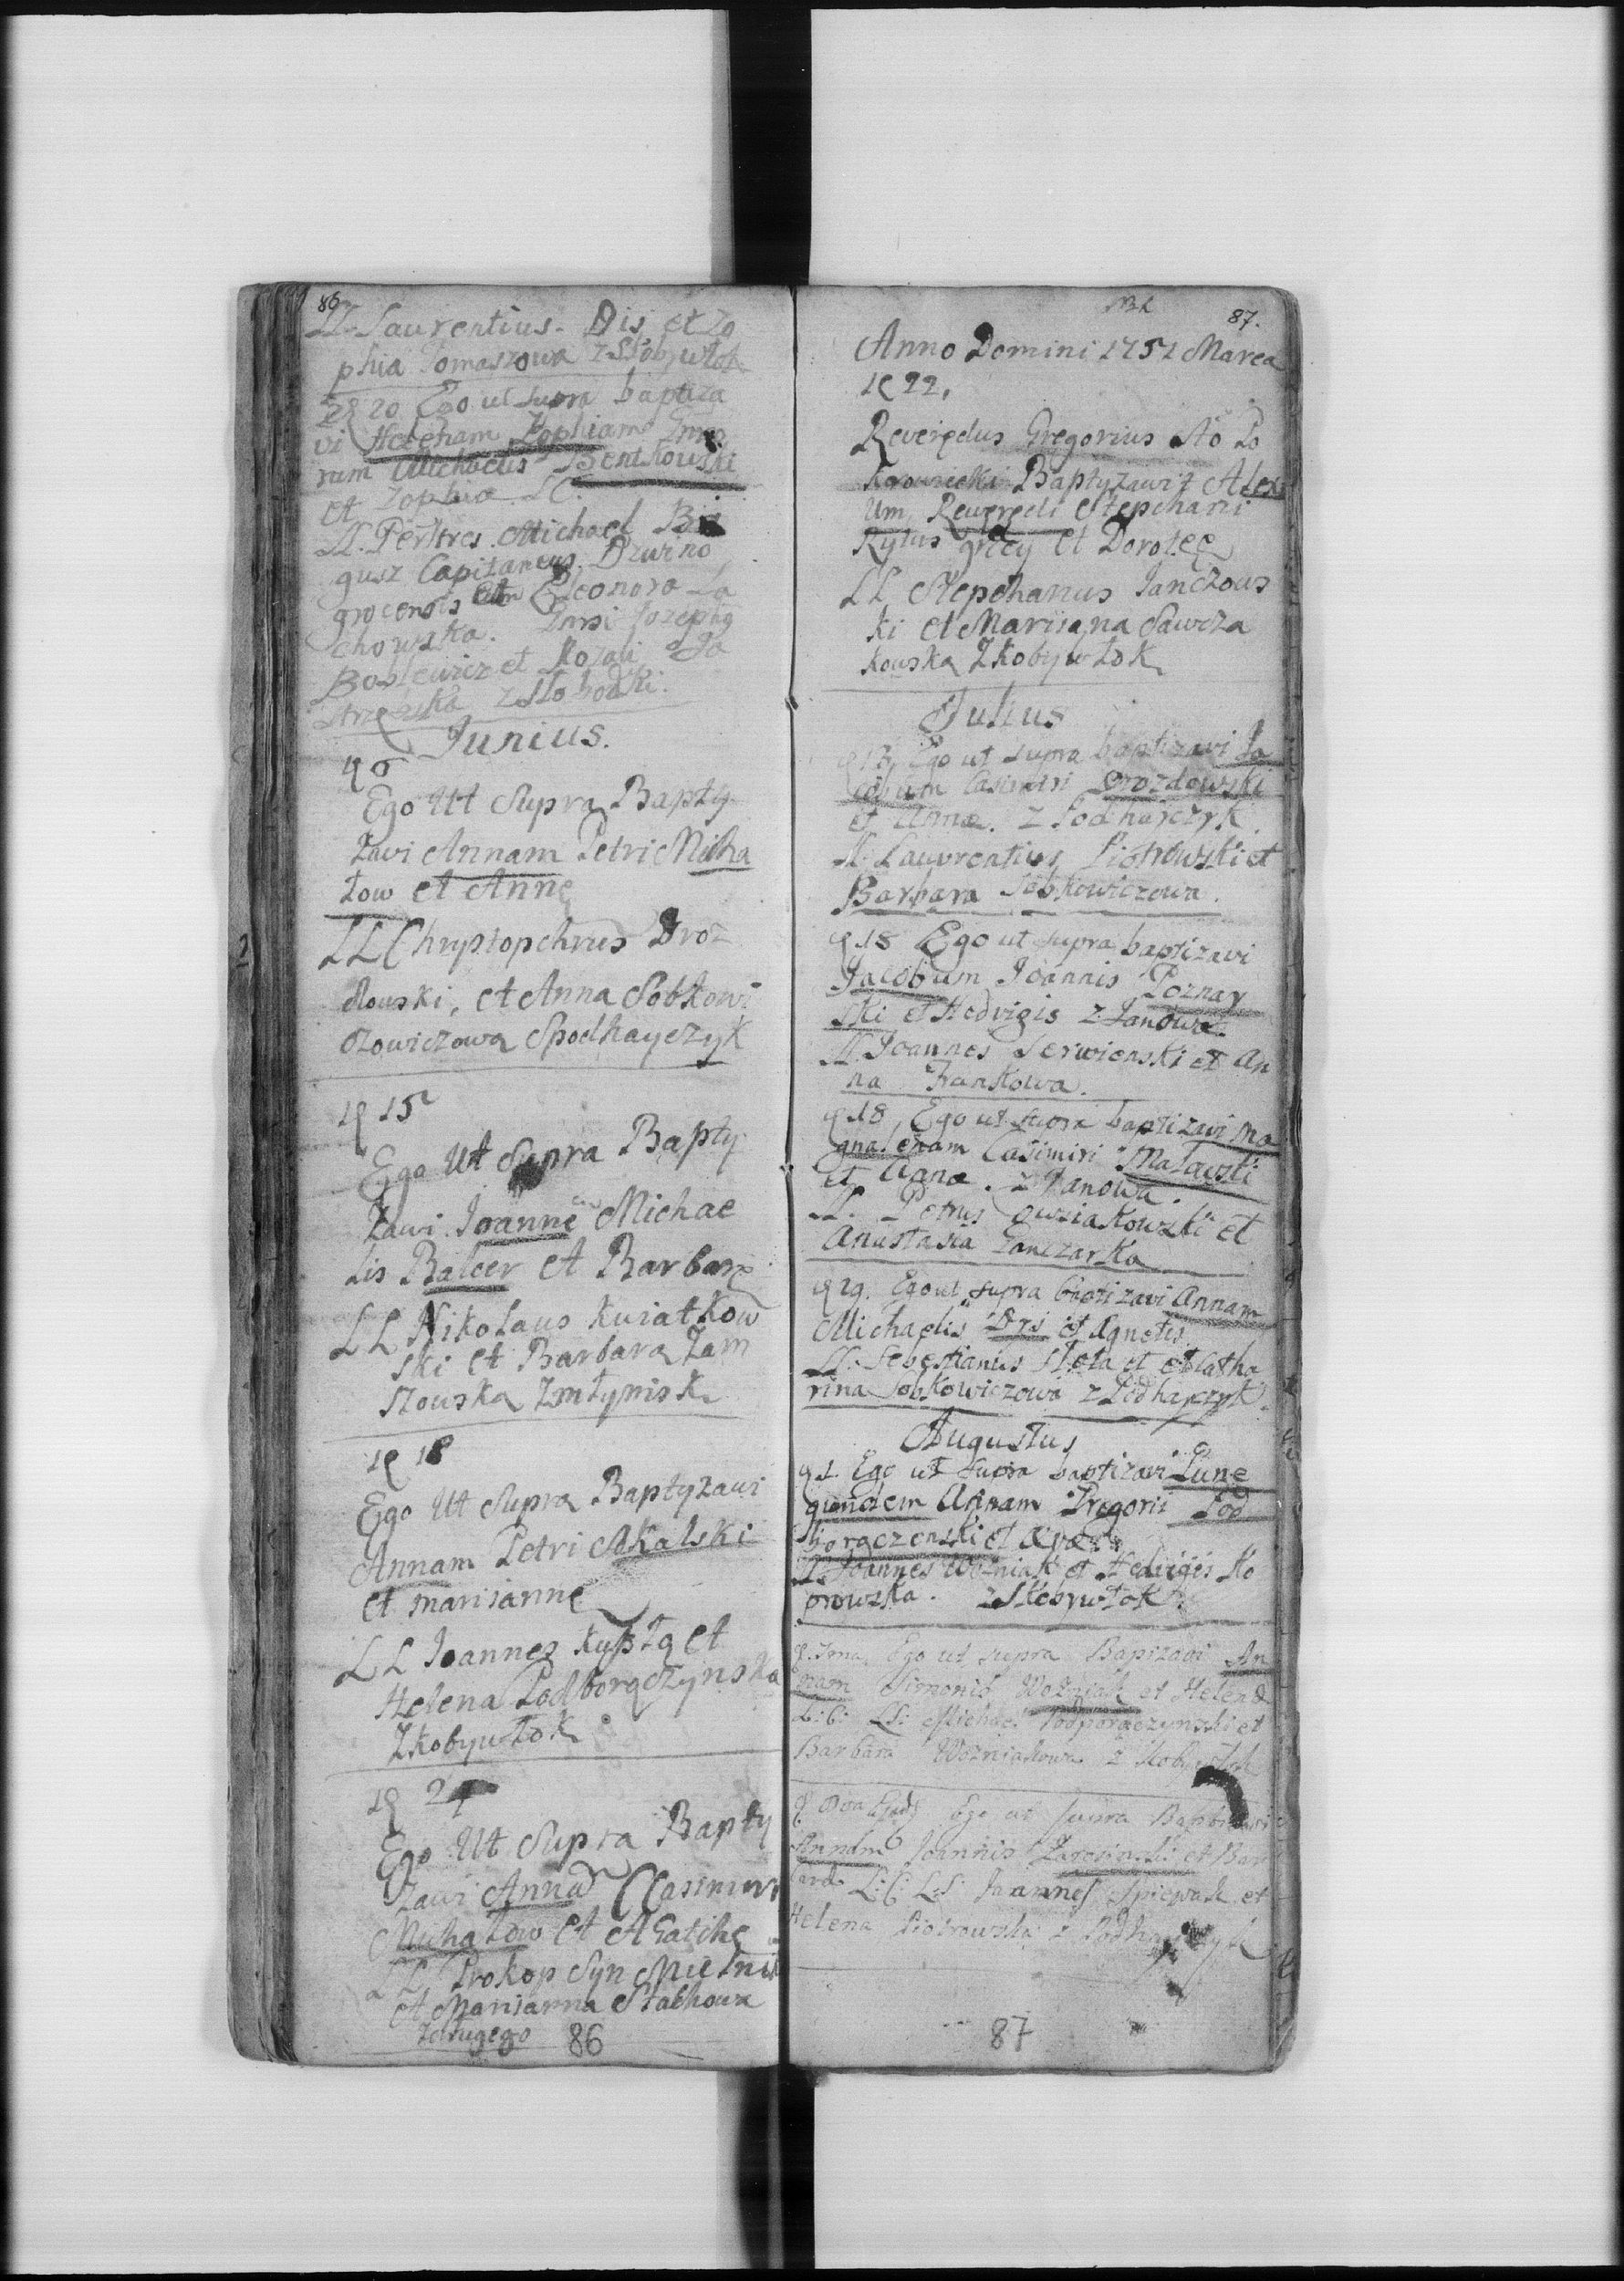 86
LL. Laurentius. Dis et Zo
phia Tomaszowa z Kobywłok
20 Ego ut supra baptiza
vi Helenam Zophiam
rum Michaelis Benkowski
et Zophiæ LC.
LL. Michael
gusz Capitaneus Dzwino
grocensis cum Eleonora La
chowska. Josephq
et Rozali Ja
strzębska z Słobodki.
Junius.
Ego Ut Supra Bapty
zawi Annam Petri Micha
łow et Annę
LL Chryptopchrus Droz
douski, et Anna Sobkowi
czowiczowa Spodhayczyk
15
Ego Ut Supra Bapty
zawi Joannę Michae
lis Balcer et Barbarę
LL Nikolaus Kwiatkow
ski et Barbara Zam
szouska Zmłynisk
18
Ego Ut Supra Baptyzawi
Annam Petri Skalski
et marisannę
LL Joannes et
Helena Podborączynska
Zkobywłok
24
Ego Ut Supra Bapty
zawi Anna Casimiri
Michałow et Agatihę
LL Prokop Syn Mielnik
et Marisanna Stachowa
86
87.
Anno Domini 1751 Marca
22,
Reverędus Gregorius
Baptyzawit Alex
um, Reverędi Stepchani
Rytus gręcy et Dorotęę
LL Stepchanus Janczous
ki et Marisanna Sawcza
kouska Zkobywłok
Julius
13, Ego ut supra baptizavi Ja
cobum Casimiri Drozdowski
et Annæ. z Podhayczyk.
LL. Laurentius Piotrowski et
Barbara Sobkowiczowa.
18 Ego ut supra baptizavi
Jacobum Joannis Poznan
ski et Hedvigis z Janowa.
LL. Joannes Serwienski et An
na Jankowa.
18, Ego ut supra baptizavi Ma
gnalenam Casimiri Malawski
et Agnæ. z Janowa.
LL. Petrus Owsiakowski et
Anastasia Ganczarka
29. Ego ut supra baptizavi Annam
Michaelis Dys et Agnetis
LL. Sebestianus et Catha
rina Sobkowiczowa z Podhayczyk.
Augustus
1. Ego ut supra baptizavi Cune
gundem Annam Gregorii Pod
borączenski et
LL. Joannes Wozniak et Hedvigis Ko
prowska. z Kobywłok.
Ima, Ego ut supra Baptizavi An
nam Simonis Wozniak et Helenæ
L:C: LL: Michael Podporączynski et
Barbara Wozniakowa z Kobywłok
Ego ut supra Baptizavi
Annam Joannis Jarosinski et Bar
baræ L:C: L:L: Joannes Spiewak et
Helena Piotrowska z Podhayczyk
87